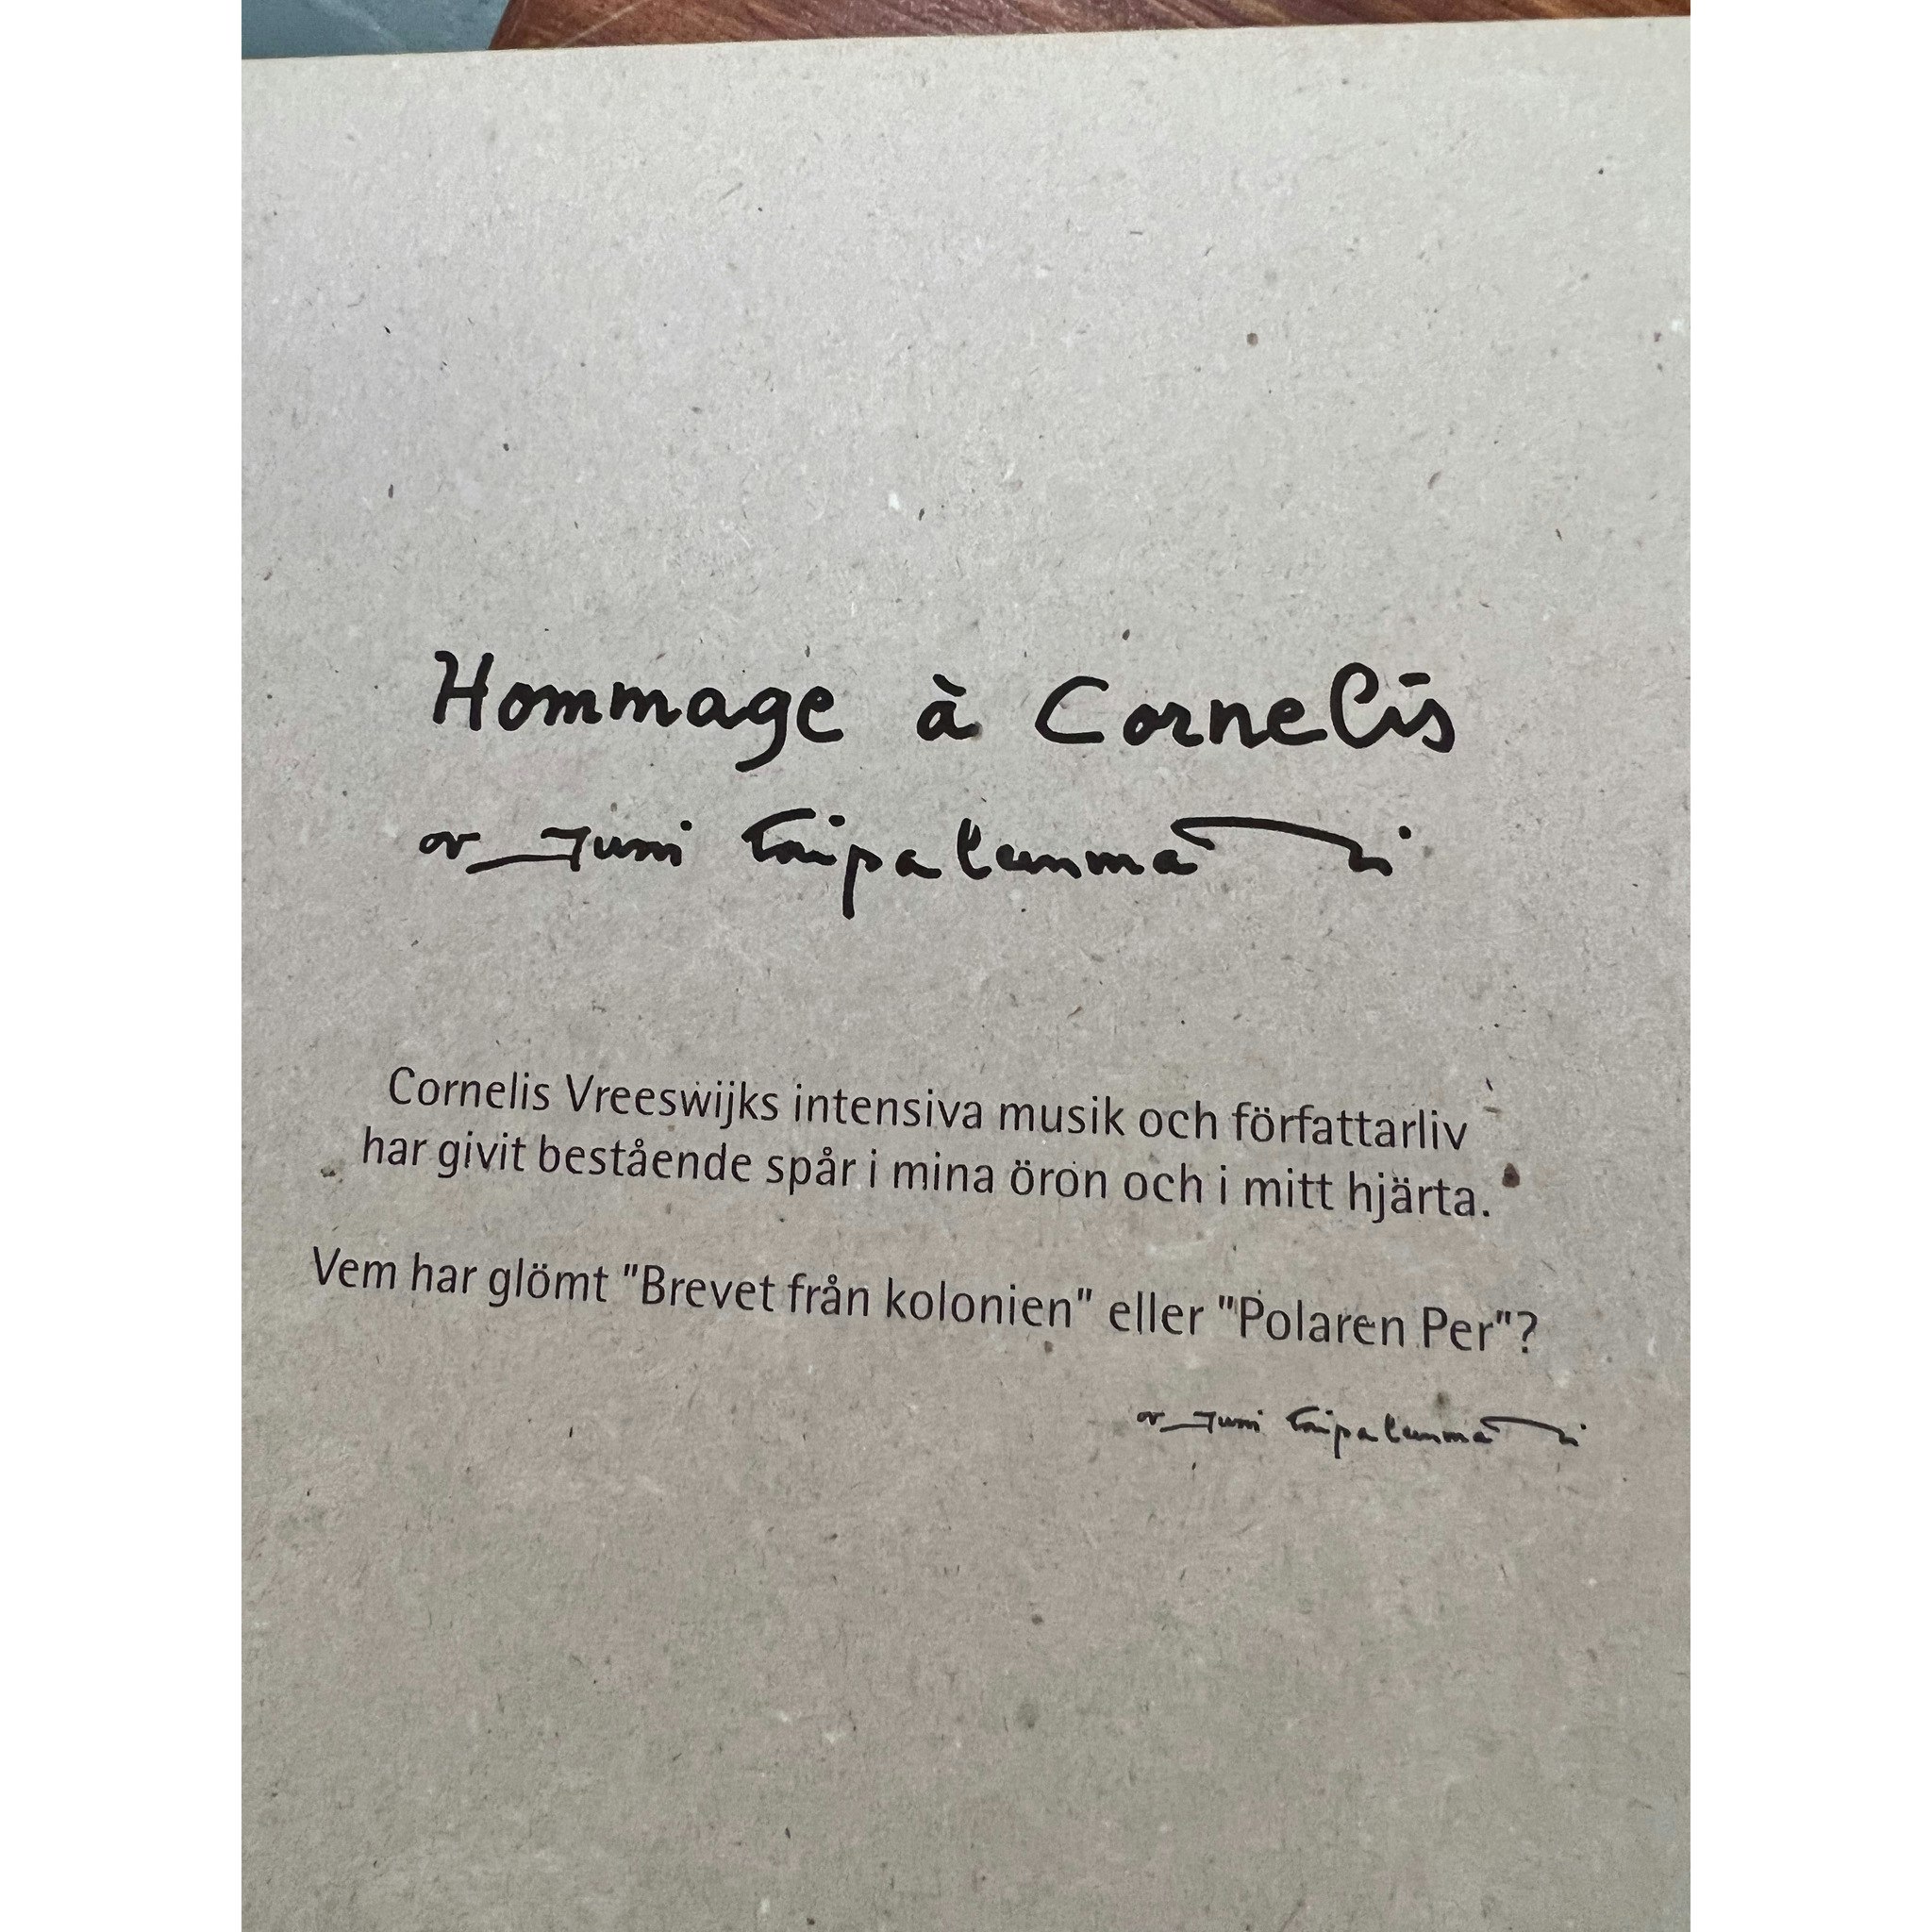 Hommage à Cornelis
av Jussi Taipaleenmäki
Cornelis Vreeswijks intensiva musik och författarliv
har givit bestående spår i mina öron och i mitt hjärta.
Vem har glömt "Brevet från kolonien" eller "Polaren Per"?
av Jussi Taipaleenmäki